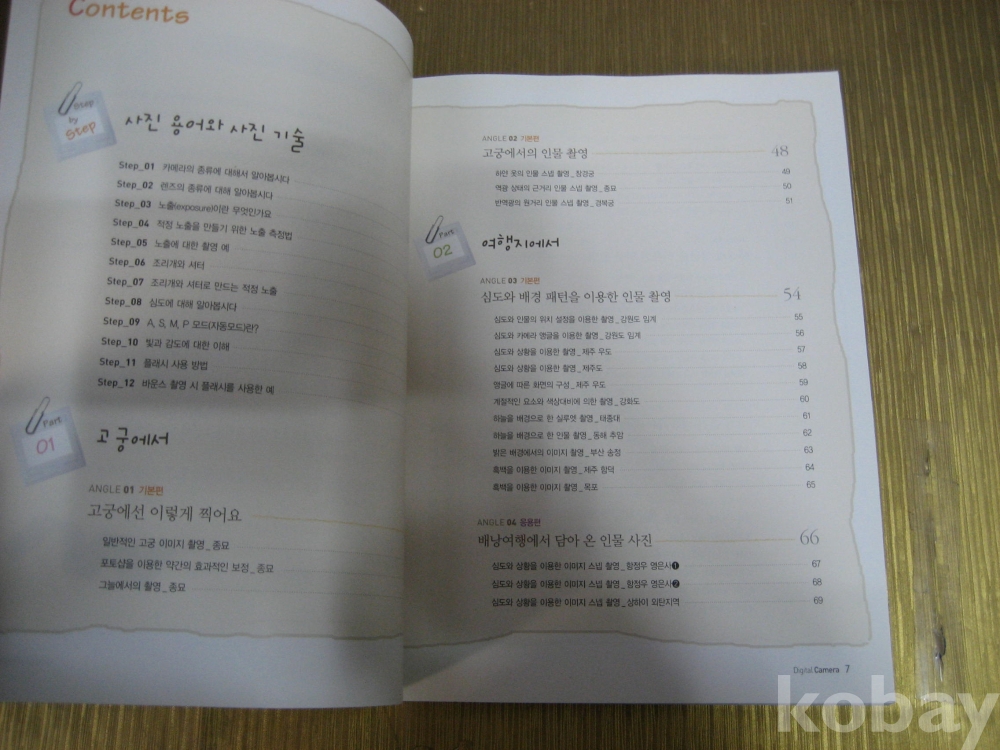 Contents
Step
by
Step
사진 용어와 사진 기술
Step_01 카메라의 종류에 대해서 알아봅시다
Step_02 렌즈의 종류에 대해 알아봅시다
Step_03 노출(exposure)이란 무엇인가요
Step_04 적정 노출을 만들기 위한 노출 측정법
Step_05 노출에 대한 촬영 예
Step_06 조리개와 셔터
Step_07 조리개와 셔터로 만드는 적정 노출
Step_08 심도에 대해 알아봅시다
Step_09 A, S, M, P 모드(자동모드)란?
Step_10 빛과 감도에 대한 이해
Step_11 플래시 사용 방법
Step_12 바운스 촬영 시 플래시를 사용한 예
Part
01
고궁에서
ANGLE 01 기본편
고궁에선 이렇게 찍어요
일반적인 고궁 이미지 촬영_종묘
포토샵을 이용한 약간의 효과적인 보정_종묘
그늘에서의 촬영_종묘
ANGLE 02 기본편
고궁에서의 인물 촬영 48
하얀 옷의 인물 스냅 촬영_창경궁 49
역광 상태의 근거리 인물 스냅 촬영_종묘 50
반역광의 원거리 인물 스냅 촬영_경복궁 51
Part
02
여행지에서
ANGLE 03 기본편
심도와 배경 패턴을 이용한 인물 촬영 54
심도와 인물의 위치 설정을 이용한 촬영_강원도 임계 55
심도와 카메라 앵글을 이용한 촬영_강원도 임계 56
심도와 상황을 이용한 촬영_제주 우도 57
심도와 상황을 이용한 촬영_제주도 58
앵글에 따른 화면의 구성_제주 우도 59
계절적인 요소와 색상대비에 의한 촬영_강화도 60
하늘을 배경으로 한 실루엣 촬영_태종대 61
하늘을 배경으로 한 인물 촬영_동해 추암 62
밝은 배경에서의 이미지 촬영_부산 송정 63
흑백을 이용한 이미지 촬영_제주 함덕 64
흑백을 이용한 이미지 촬영_목포 65
ANGLE 04 응용편
배낭여행에서 담아 온 인물 사진 66
심도와 상황을 이용한 이미지 스냅 촬영_항정우 영은사❶ 67
심도와 상황을 이용한 이미지 스냅 촬영_항정우 영은사❷ 68
심도와 상황을 이용한 이미지 스냅 촬영_상하이 외탄지역 69
Digital Camera 7
kobay